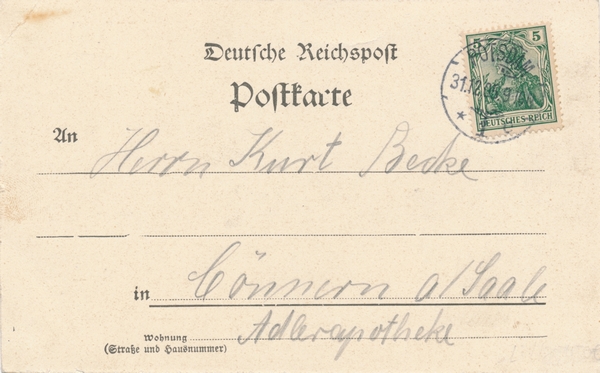 Deutsche Reichspost
Postkarte
5 5
POTSDAM
31.12.
DEUTSCHES-REICH
An Herrn Kurt Becke
in Cönnern a/Saale
Adlerapotheke
Wohnung
(Straße und Hausnummer)